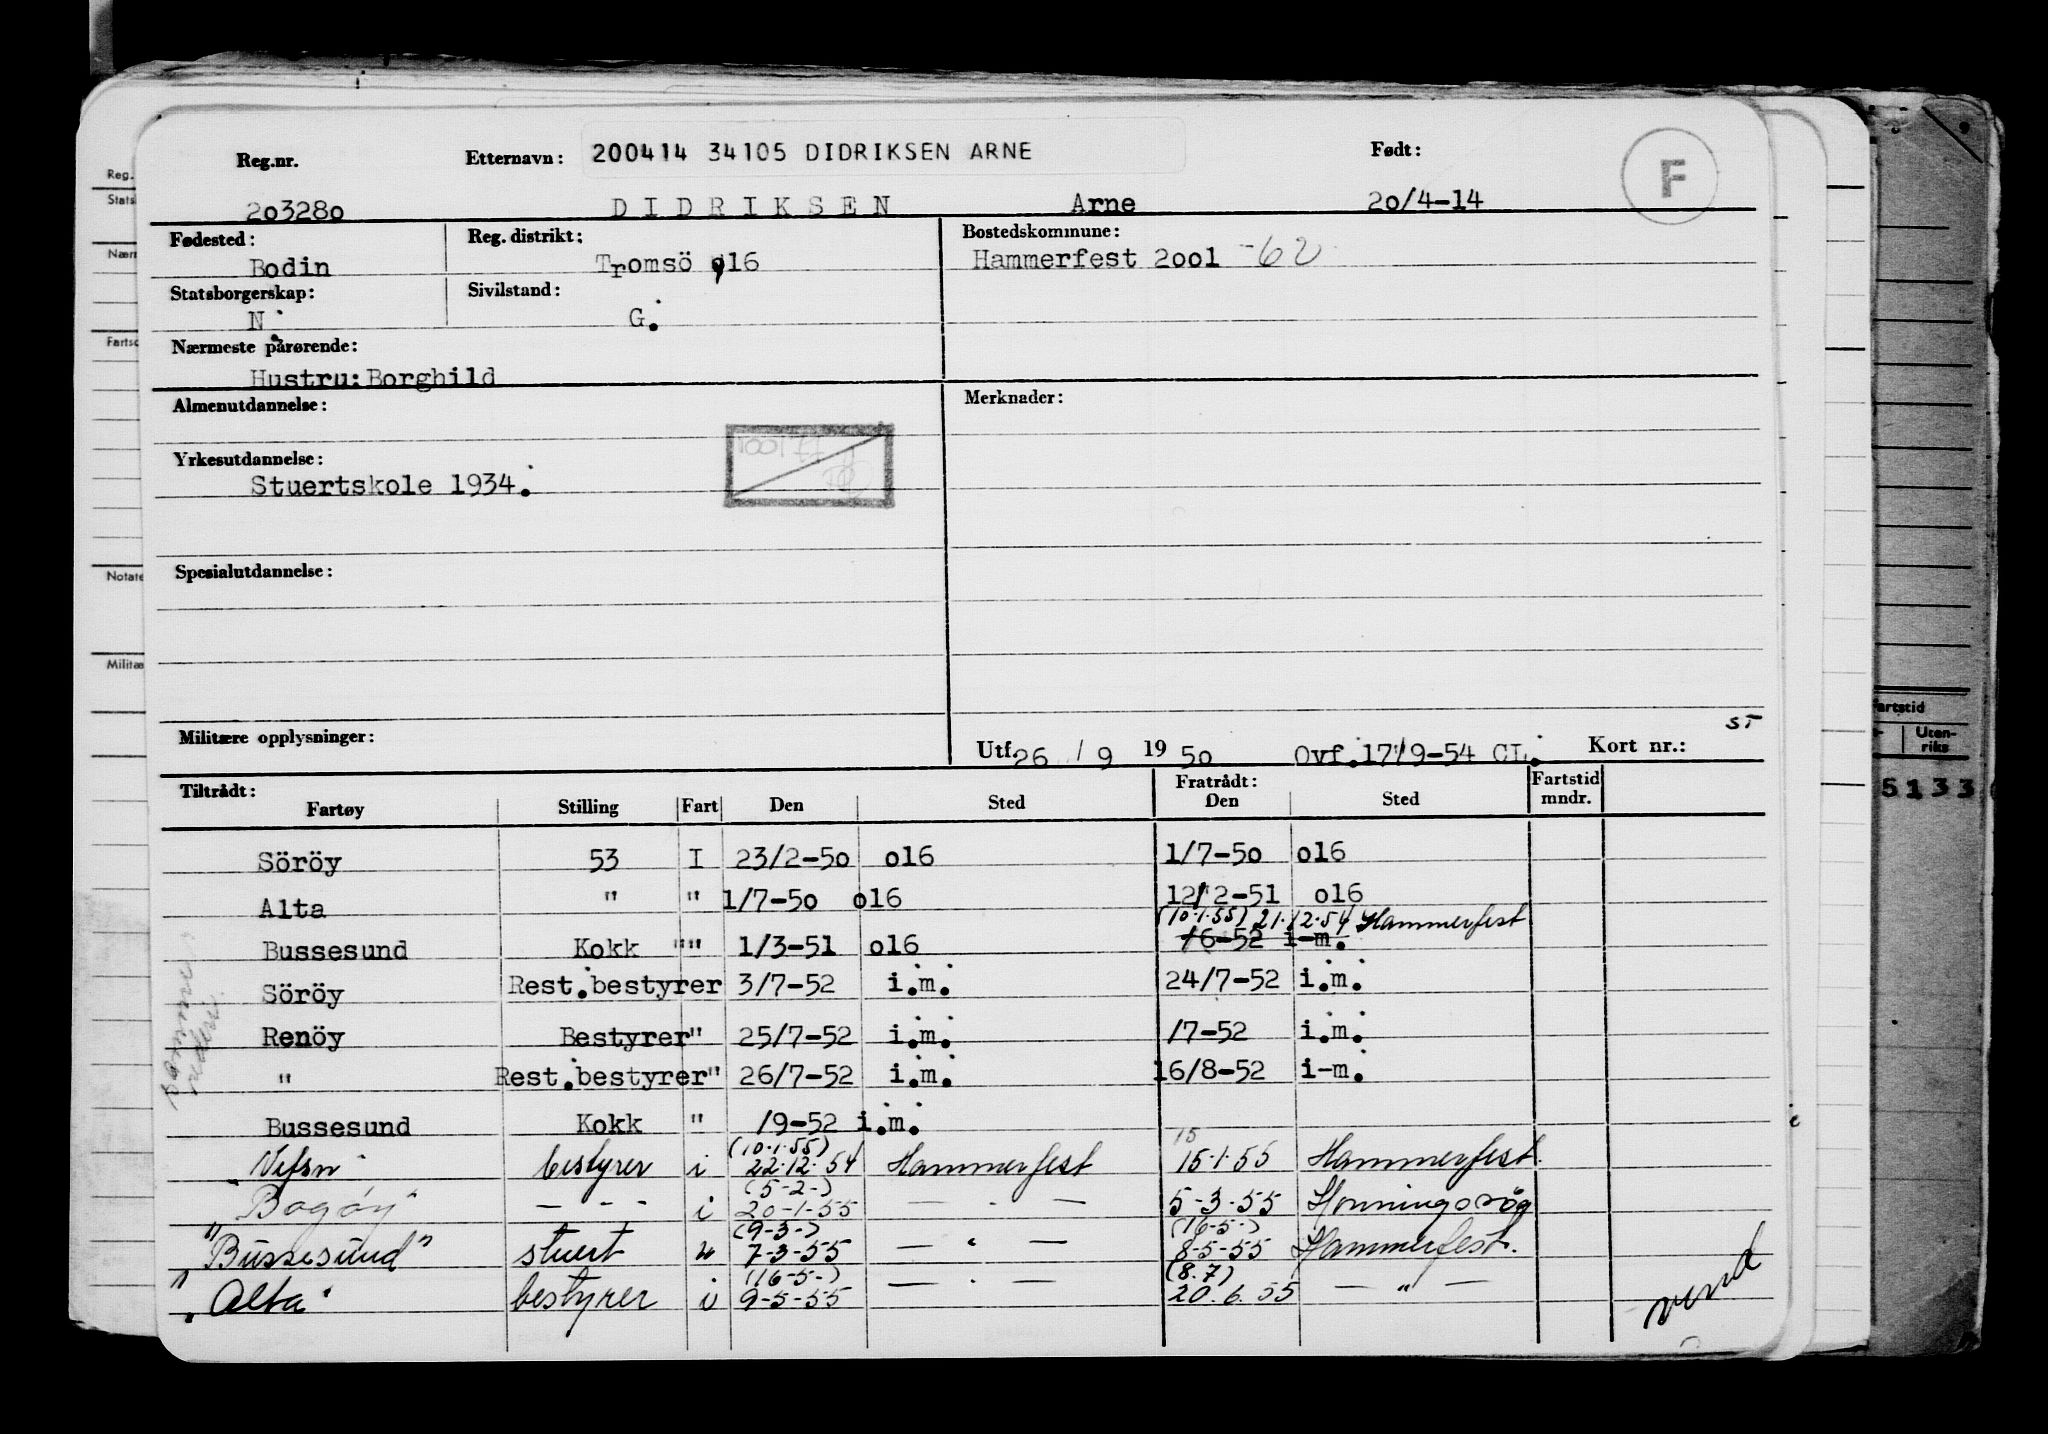 Reg.nr. Etternavn: 200414 34105 DIDRIKSEN ARNE Født: F
203280 DIDRIKSEN Arne 20/4-14
Fødested: Reg. distrikt: Bostedskommune:
Bodin Tromsö o16 Hammerfest 2001 -62
Statsborgerskap: Sivilstand:
N. G.
Nærmeste pårørende:
Hustru: Borghild
Almenutdannelse: Merknader:
Yrkesutdannelse:
Stuertskole 1934.
Spesialutdannelse:
Militære opplysninger: ST
Utf. 26 / 9 19 50 Ovf. 17/9-54 CL. Kort nr.:
Tiltrådt: Fratrådt: Fartstid
Fartøy Stilling Fart Den Sted Den Sted mndr.
Söröy 53 I 23/2-50 o16 1/7-50 o16
Alta " " 1/7-50 o16 12/2-51 o16
(10.1.55) 21.12.54 Hammerfest
Bussesund Kokk "" 1/3-51 o16 /6-52 i-m.
Söröy Rest.bestyrer 3/7-52 i.m. 24/7-52 i.m.
Renöy Bestyrer" 25/7-52 i.m. /7-52 i.m.
" Rest.bestyrer" 26/7-52 i.m. 16/8-52 i-m.
Bussesund Kokk " /9-52 i.m.
(10.1.55) 15
"Vefsn" bestyrer i 22.12.54 Hammerfest 15.1.55 Hammerfest.
(5-2-)
"Bogöy" - - - i 20-1-55 — - — 5-3-55 Honningsvåg
(9-3-) (16-5-)
"Bussesund" stuert " 7-3-55 — " — 8-5-55 Hammerfest.
(16-5-) (8.7)
"Alta" bestyrer i 9-5-55 — - — 20.6.55 — " —
vend
samme rederi.
Reg.
Stats
Nærm
Fartsc
Notate
Militæ
artstid
Uten-
riks
5133